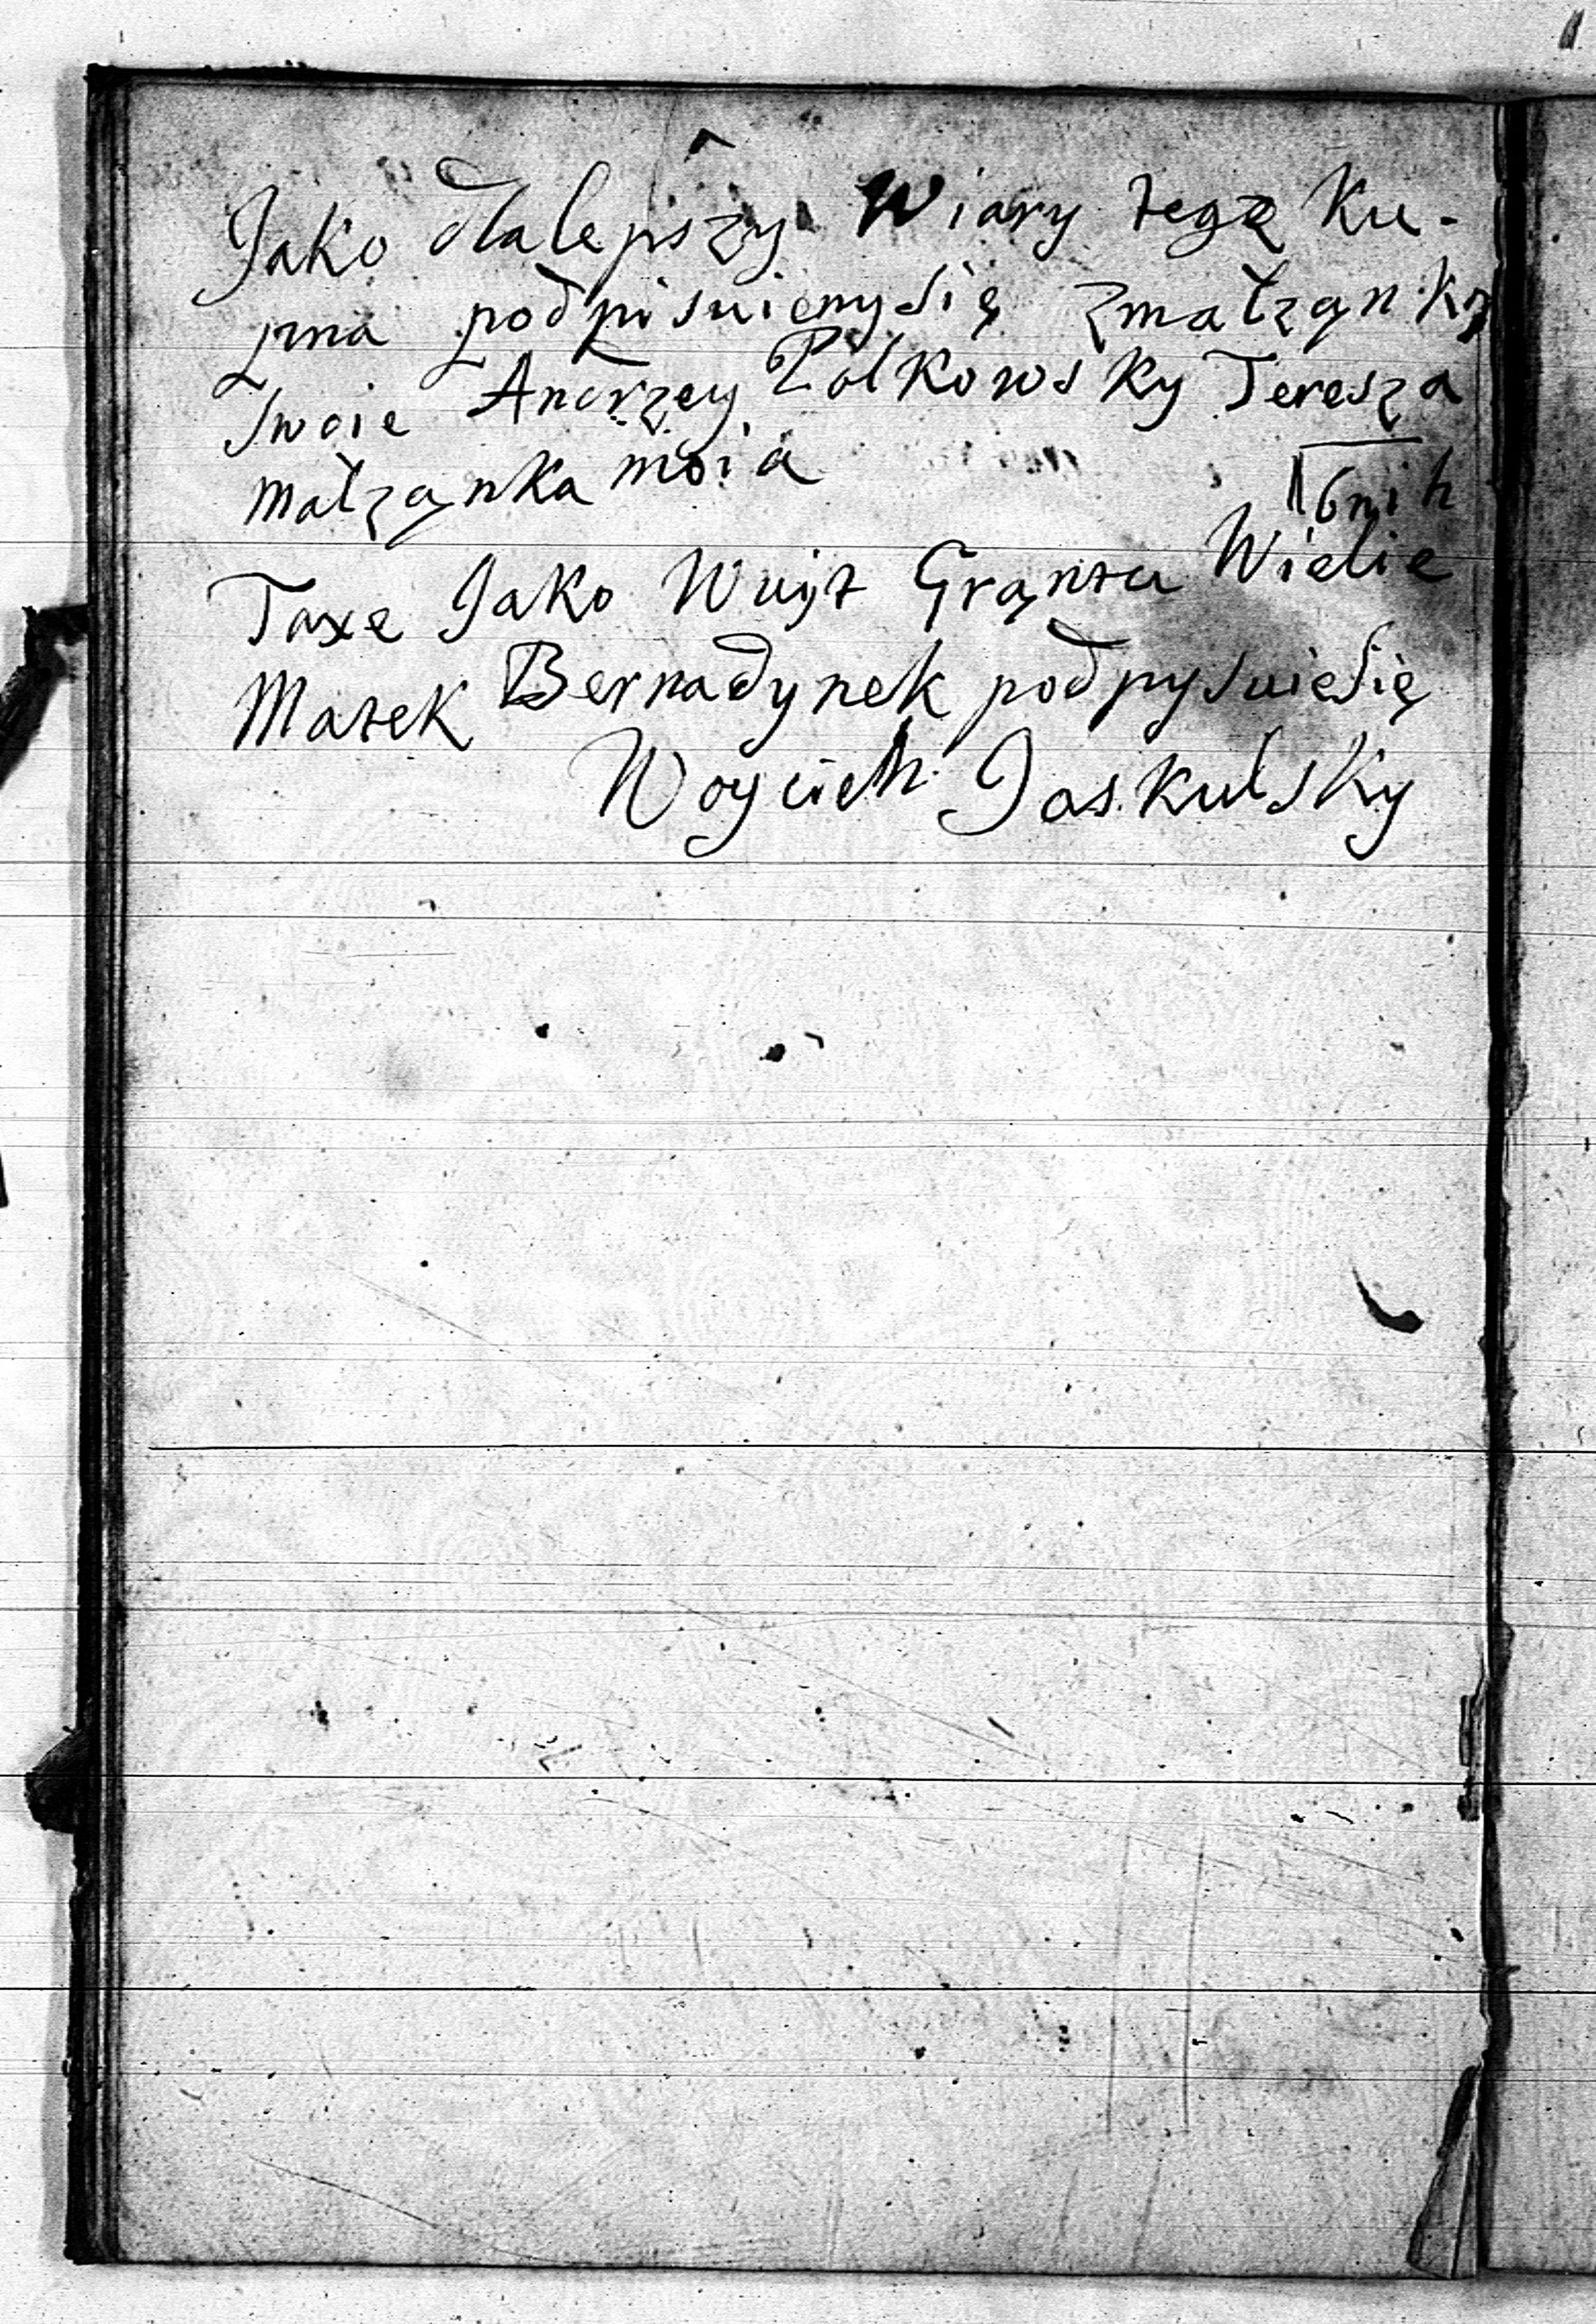 Jako dlalepszy Wiary tegę Ku-
pna podpisuiemysię zmałząnką
Swoie Andrzey Żolkowsky Teresza
małząnka moia
Taxe Jako Wuijt Grąntu Wielie
Matek Bernadynek podpysuiesię
Woycieh Jaskulsky